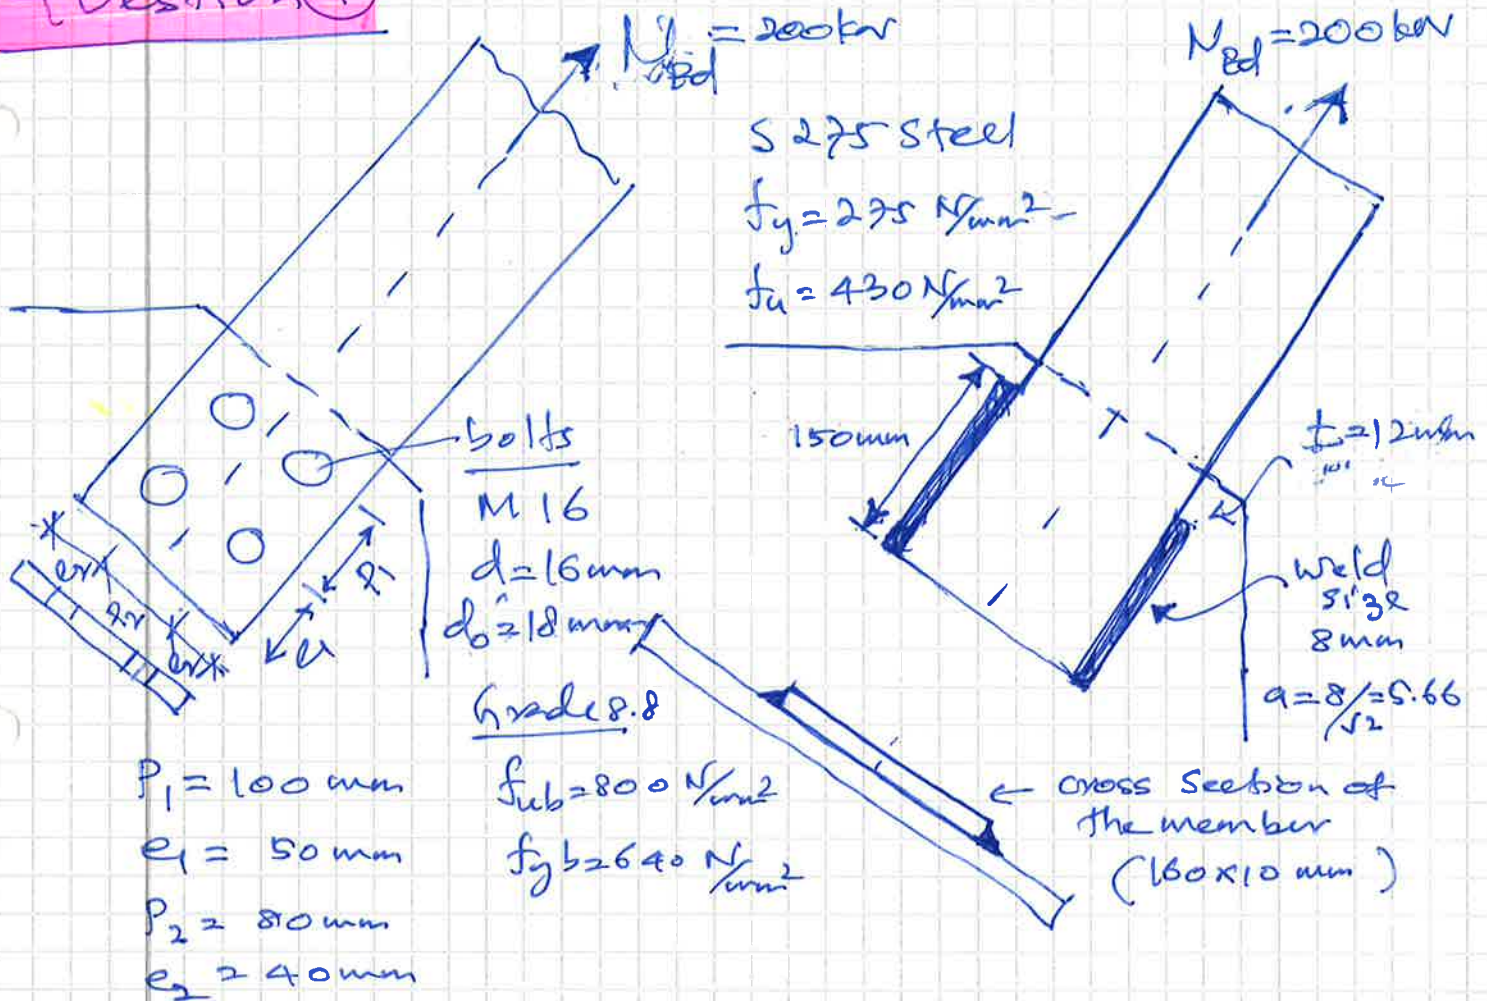 Question 1
N_Ed = 200kN
N_Ed = 200kN
S 275 Steel
f_y = 275 N/mm²
f_u = 430 N/mm²
bolts
M 16
d = 16mm
d_o = 18mm
Grade 8.8
f_ub = 800 N/mm²
f_yb = 640 N/mm²
e_2
P_2
e_2
P_1
e_1
P_1 = 100 mm
e_1 = 50 mm
P_2 = 80 mm
e_2 = 40 mm
150mm
t = 12mm
weld
size
8mm
a = 8/√2 = 5.66
← cross section of
the member
(160x10 mm)